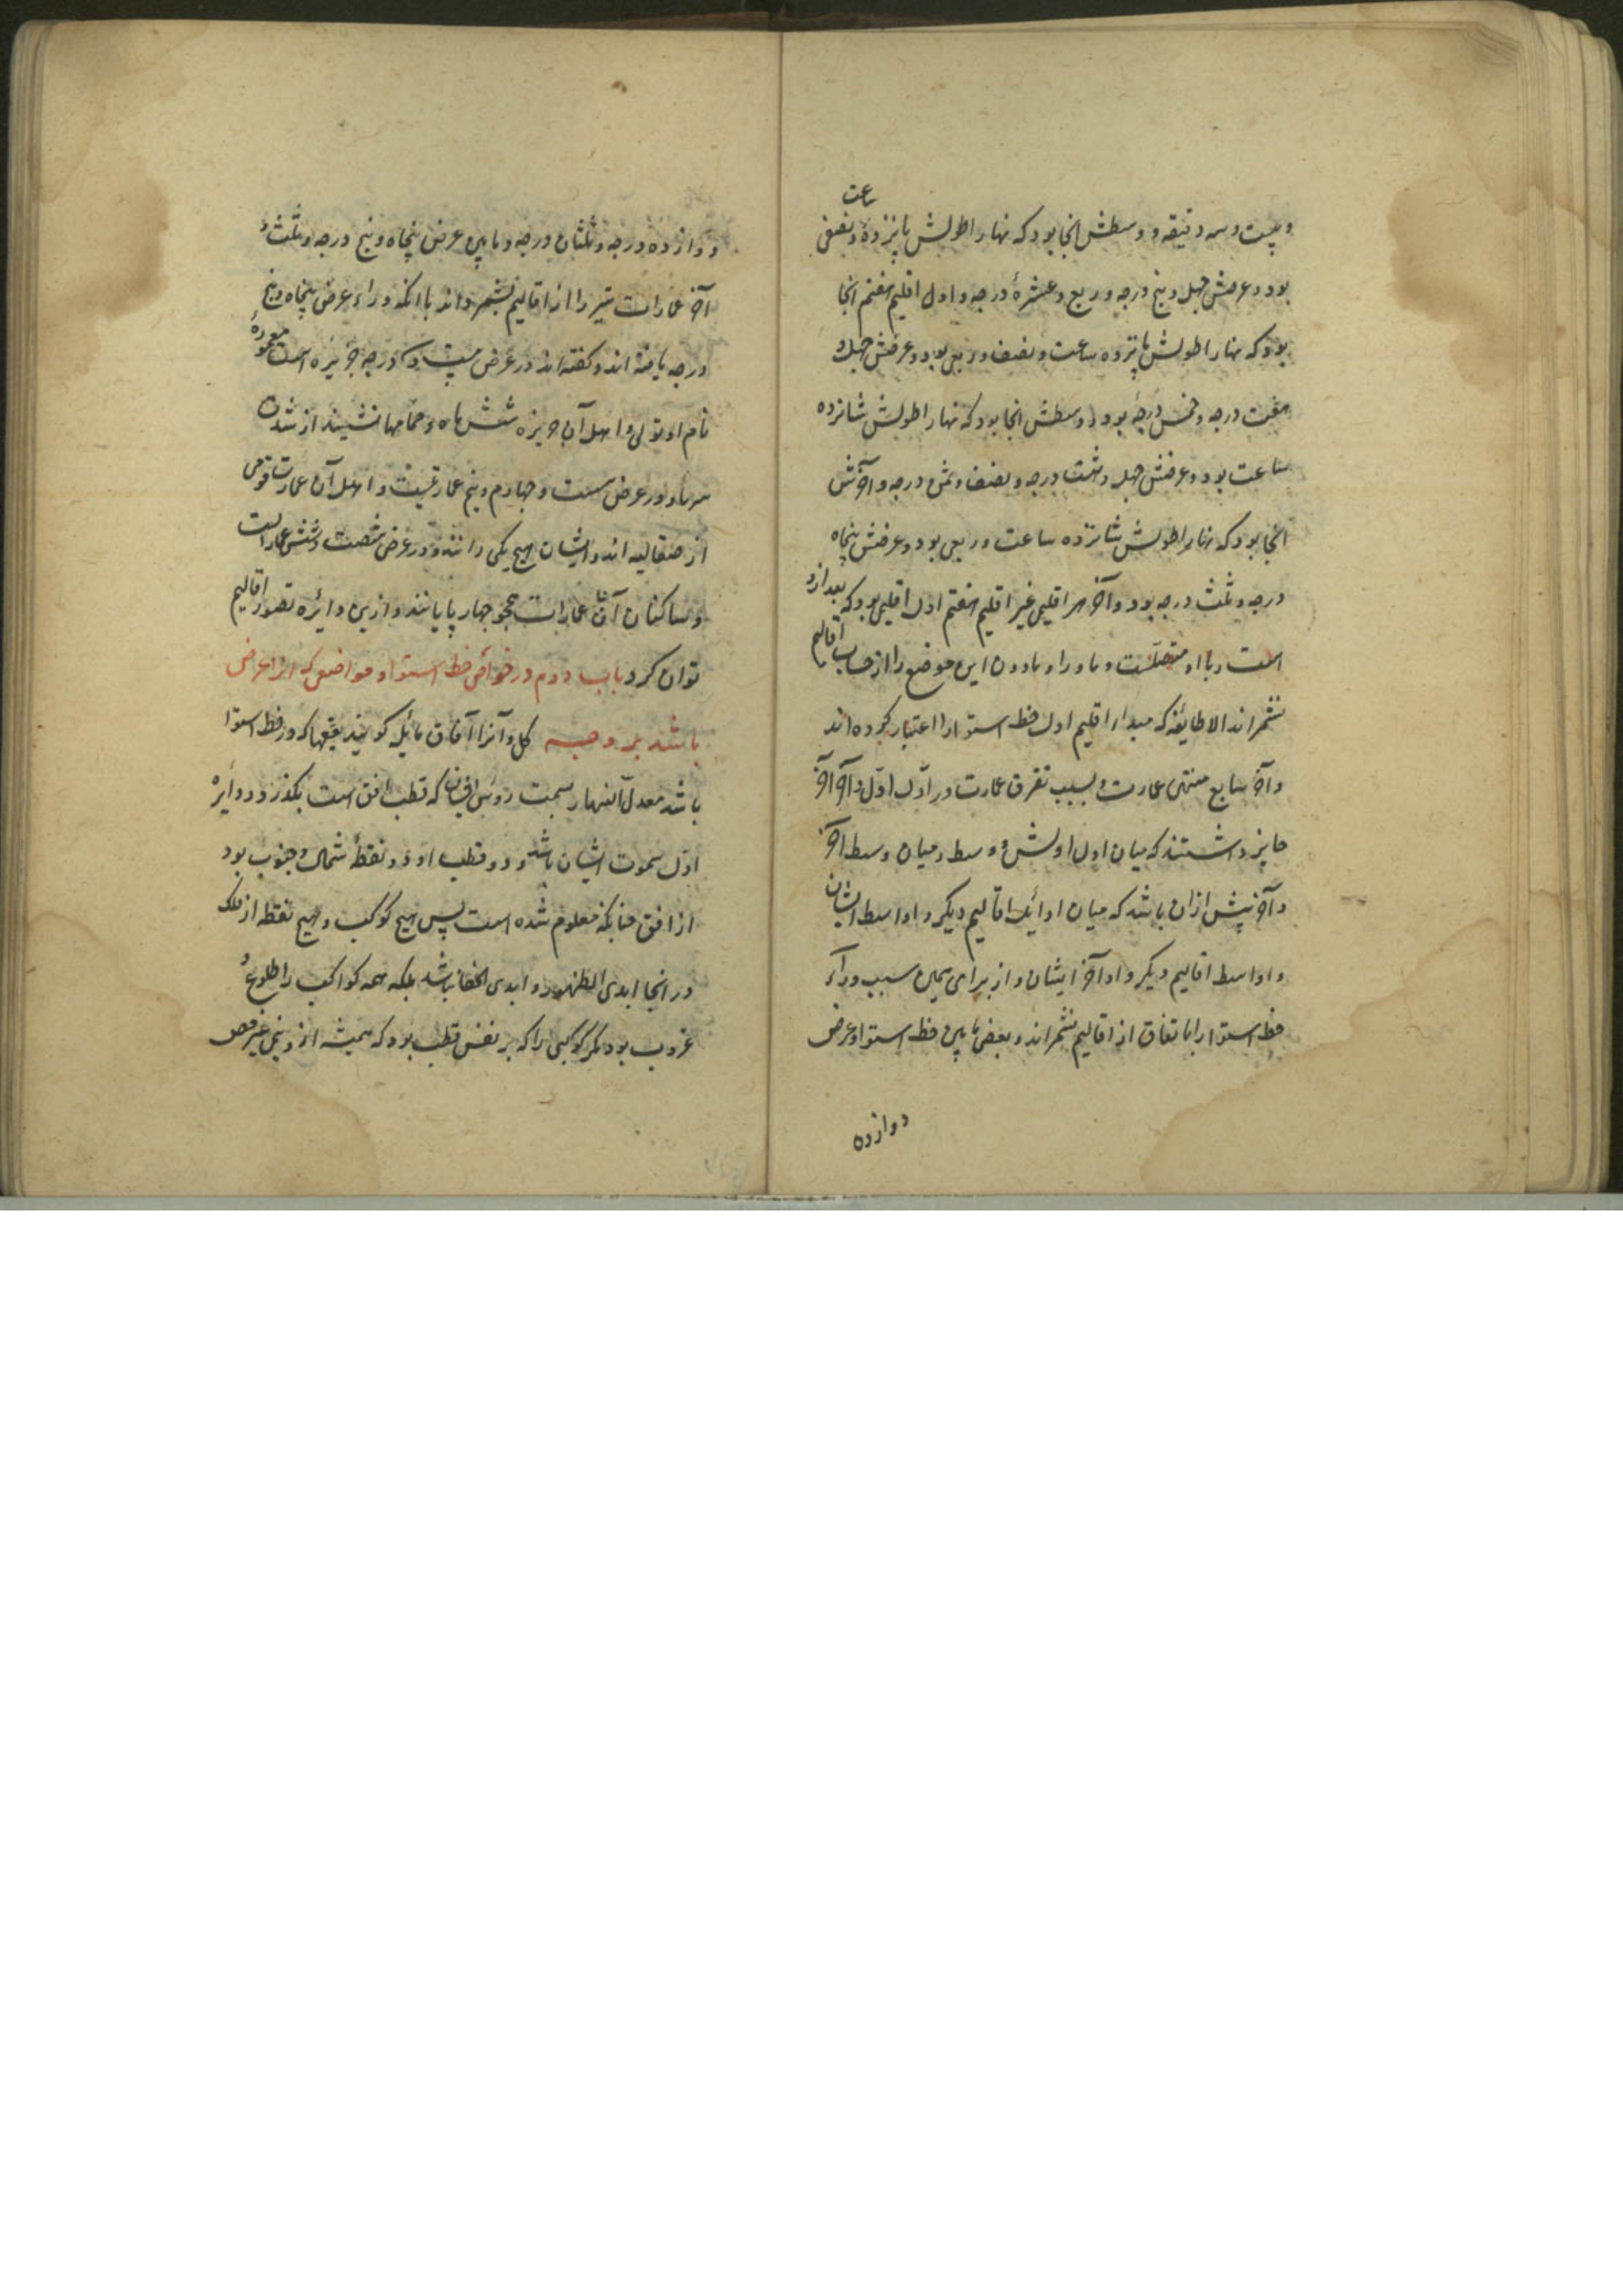 و بیست و سه دقیقه و وسطش انجا بود که نهار اطولش پانزده ساعت و نصفی
بود و عرضش چهل و پنج درجه و ربع و عشرهٔ درجه و اول اقلیم هفتم انجا
بود که نهار اطولش پانزده ساعت و نصف و ربعی بود و عرضش چهل و
هفت درجه و خمس درجه بود و وسطش انجا بود که نهار اطولش شانزده
ساعت بود و عرضش چهل و هشت درجه و نصف و ثمن درجه و آخرش
انجا بود که نهار اطولش شانزده ساعت و ربعی بود و عرضش پنجاه
درجه و ثلث درجه بود و آخر هر اقلیمی غیر اقلیم هفتم اول اقلیمی بود که بعد ازو
است و با او متصلست و ما ورا و مادون این موضع را از حساب اقالیم
نشمرند الا طایفهٔ که مبدا اقلیم اول خط استوا را اعتبار کرده‌اند
و آخر سابع منتهی عمارت و بسبب تفرق عمارت در اول اول و آخر آخر
جایز داشتند که میان اول اولش و وسط و میان وسط آخر
و آخر بیش ازان باشد که میان اوائل اقالیم دیگر و اواسط ایشان
و اواسط اقالیم دیگر و اواخر ایشان و از برای همین سبب وراء
خط استوا را باتفاق از اقالیم نشمرند و بعضی مابین خط استوا و عرض
دوازده
دوازده درجه و ثلثان درجه و مابین عرض پنجاه و پنج درجه و ثلث و
آخر عمارات نیز را از اقالیم نشمرداند با انکه وراء عرض پنجاه و پنج
درجه یافته اند و گفته اند در عرض درجه جزیره است معمورهٔ
نام او تولی و اهل آن جزیره شش ماه در حمامها نشینند از شدت
سرما و در عرض شصت و چهارم و نیم عمارتیست و اهل آن عمارت قومی
از صقالیه اند و ایشان هیچ یکی دانند و در عرض شصت و شش عماراتست
و ساکنان آن عمارات همچو چهار پایانند و ازین دائره تصور اقالیم
توان کرد باب دوم در خواص خط استوا و مواضعی که انرا عرض
باشد بر وجه کل و آنرا آفاق مائله گویند بقعها که در خط استوا
باشد معدل النهار بسمت روس ایشان که قطب افق است بگذرد و دایرهٔ
اول سموت ایشان باشد و دو قطب او دو نقطهٔ شمال و جنوب بود
از افق چنانکه معلوم شده است پس هیچ کوکب و هیچ نقطه از فلک
در انجا ابدی الظهور و ابدی الخفا نباشد بلکه همه کواکب را طلوع و
غروب بود مگر کوکبی را که بر نفس قطب بود که همیشه از و نیمی